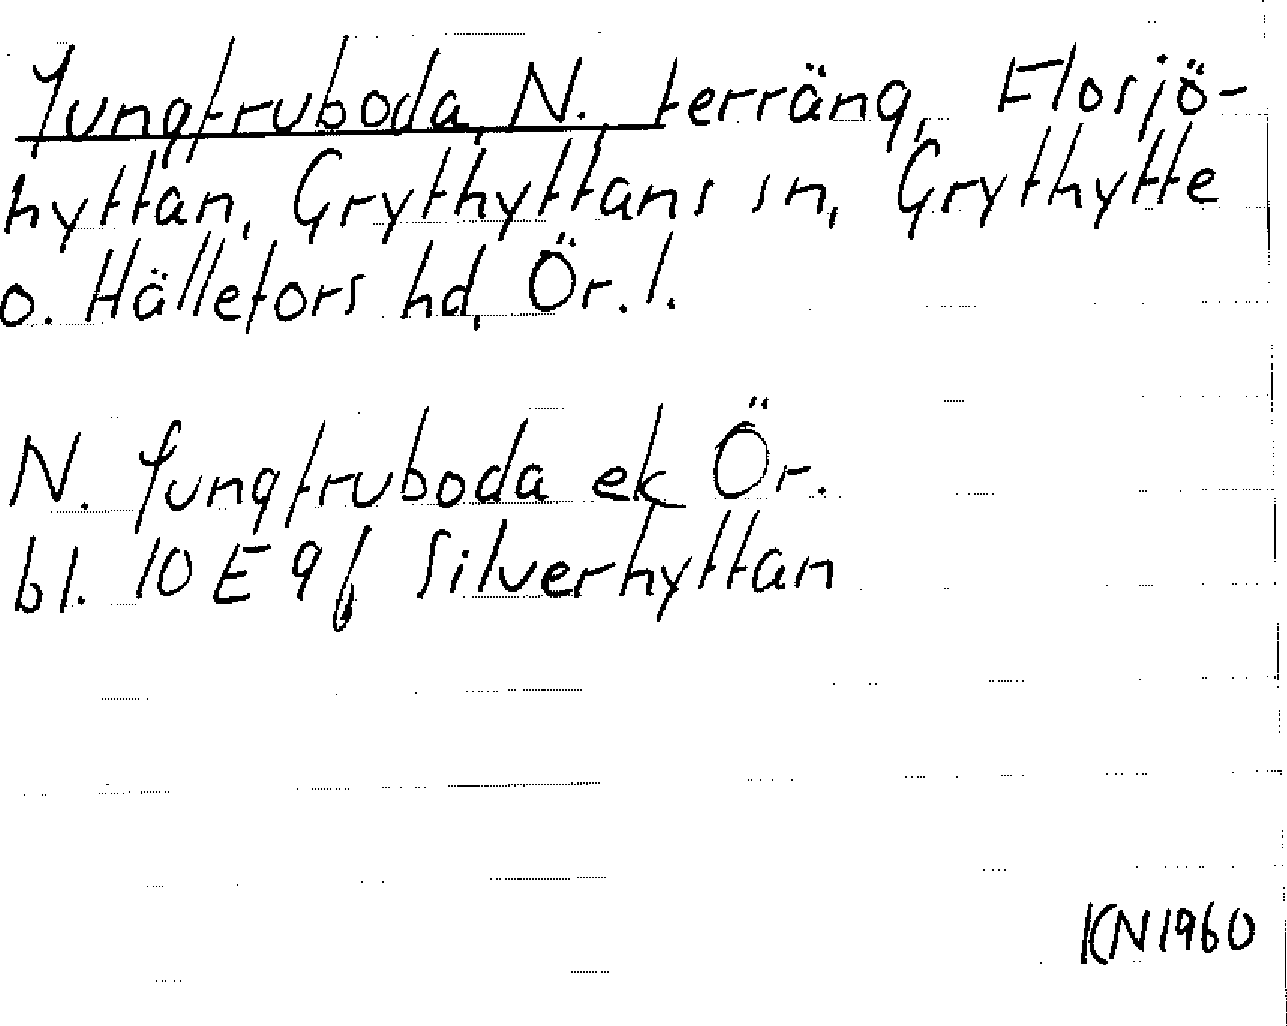 Jungfruboda, N., terräng, Elosjö-
hyttan, Grythyttans sn, Grythytte
o. Hällefors hd, Ör. l.
N. Jungfruboda ek Ör.
bl. 10 E 9 f Silverhyttan
KN 1960